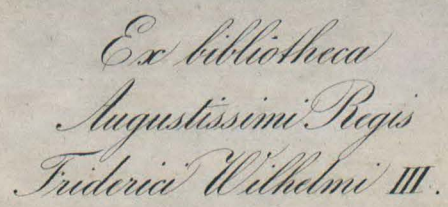 Ex bibliotheca
Augustissimi Regis
Friderici Wilhelmi III.